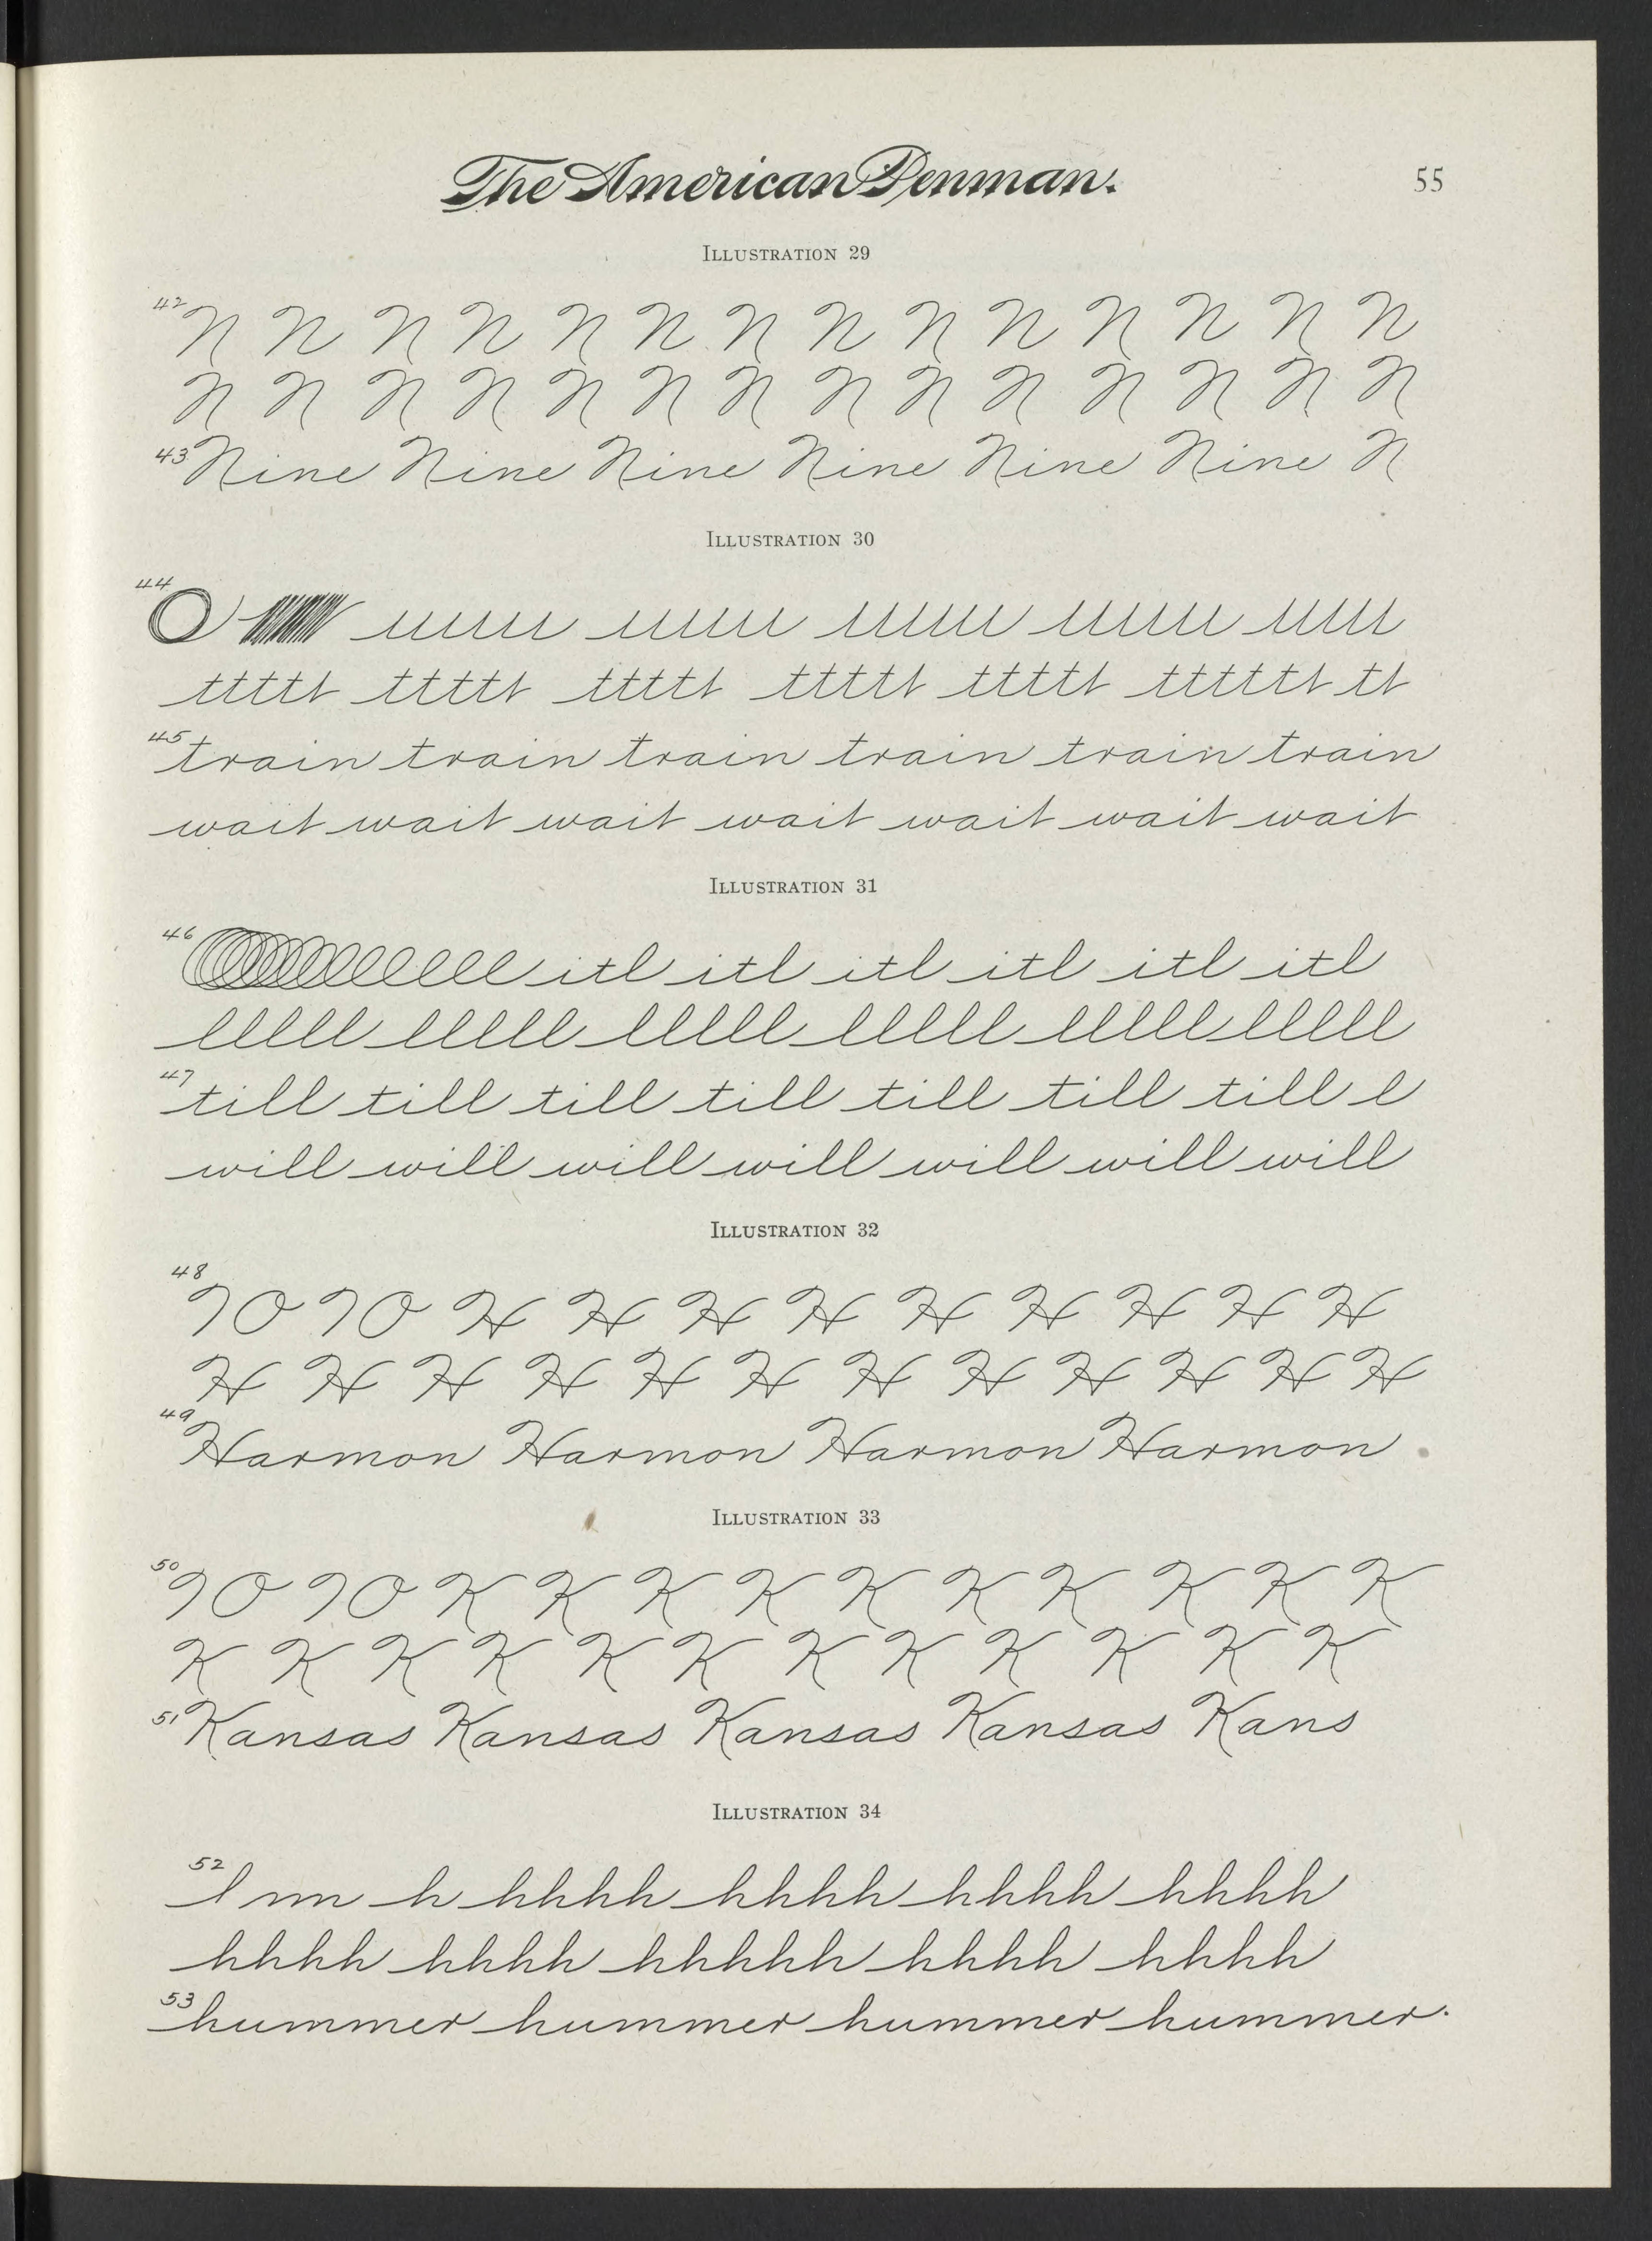 The American Penman.
55
Illustration 29
42 N N N N N N N N N N N N N N
N N N N N N N N N N N N N N
43 Nine Nine Nine Nine Nine Nine N
Illustration 30
44 O uuuu uuuu uuuu uuuu uuu
ttttt ttttt ttttt ttttt ttttt tttttt tt
45 train train train train train train
wait wait wait wait wait wait wait
Illustration 31
46 itl itl itl itl itl itl
lllll lllll lllll lllll lllll lllll
47 till till till till till till till l
will will will will will will will
Illustration 32
48 9 O 9 O H H H H H H H H H
H H H H H H H H H H H H
49 Harmon Harmon Harmon Harmon
Illustration 33
50 9 O 9 O K K K K K K K K K K
K K K K K K K K K K K K
51 Kansas Kansas Kansas Kansas Kans
Illustration 34
52 l nn h hhhh hhhh hhhh hhhh
hhhh hhhh hhhhh hhhh hhhh
53 hummer hummer hummer hummer.